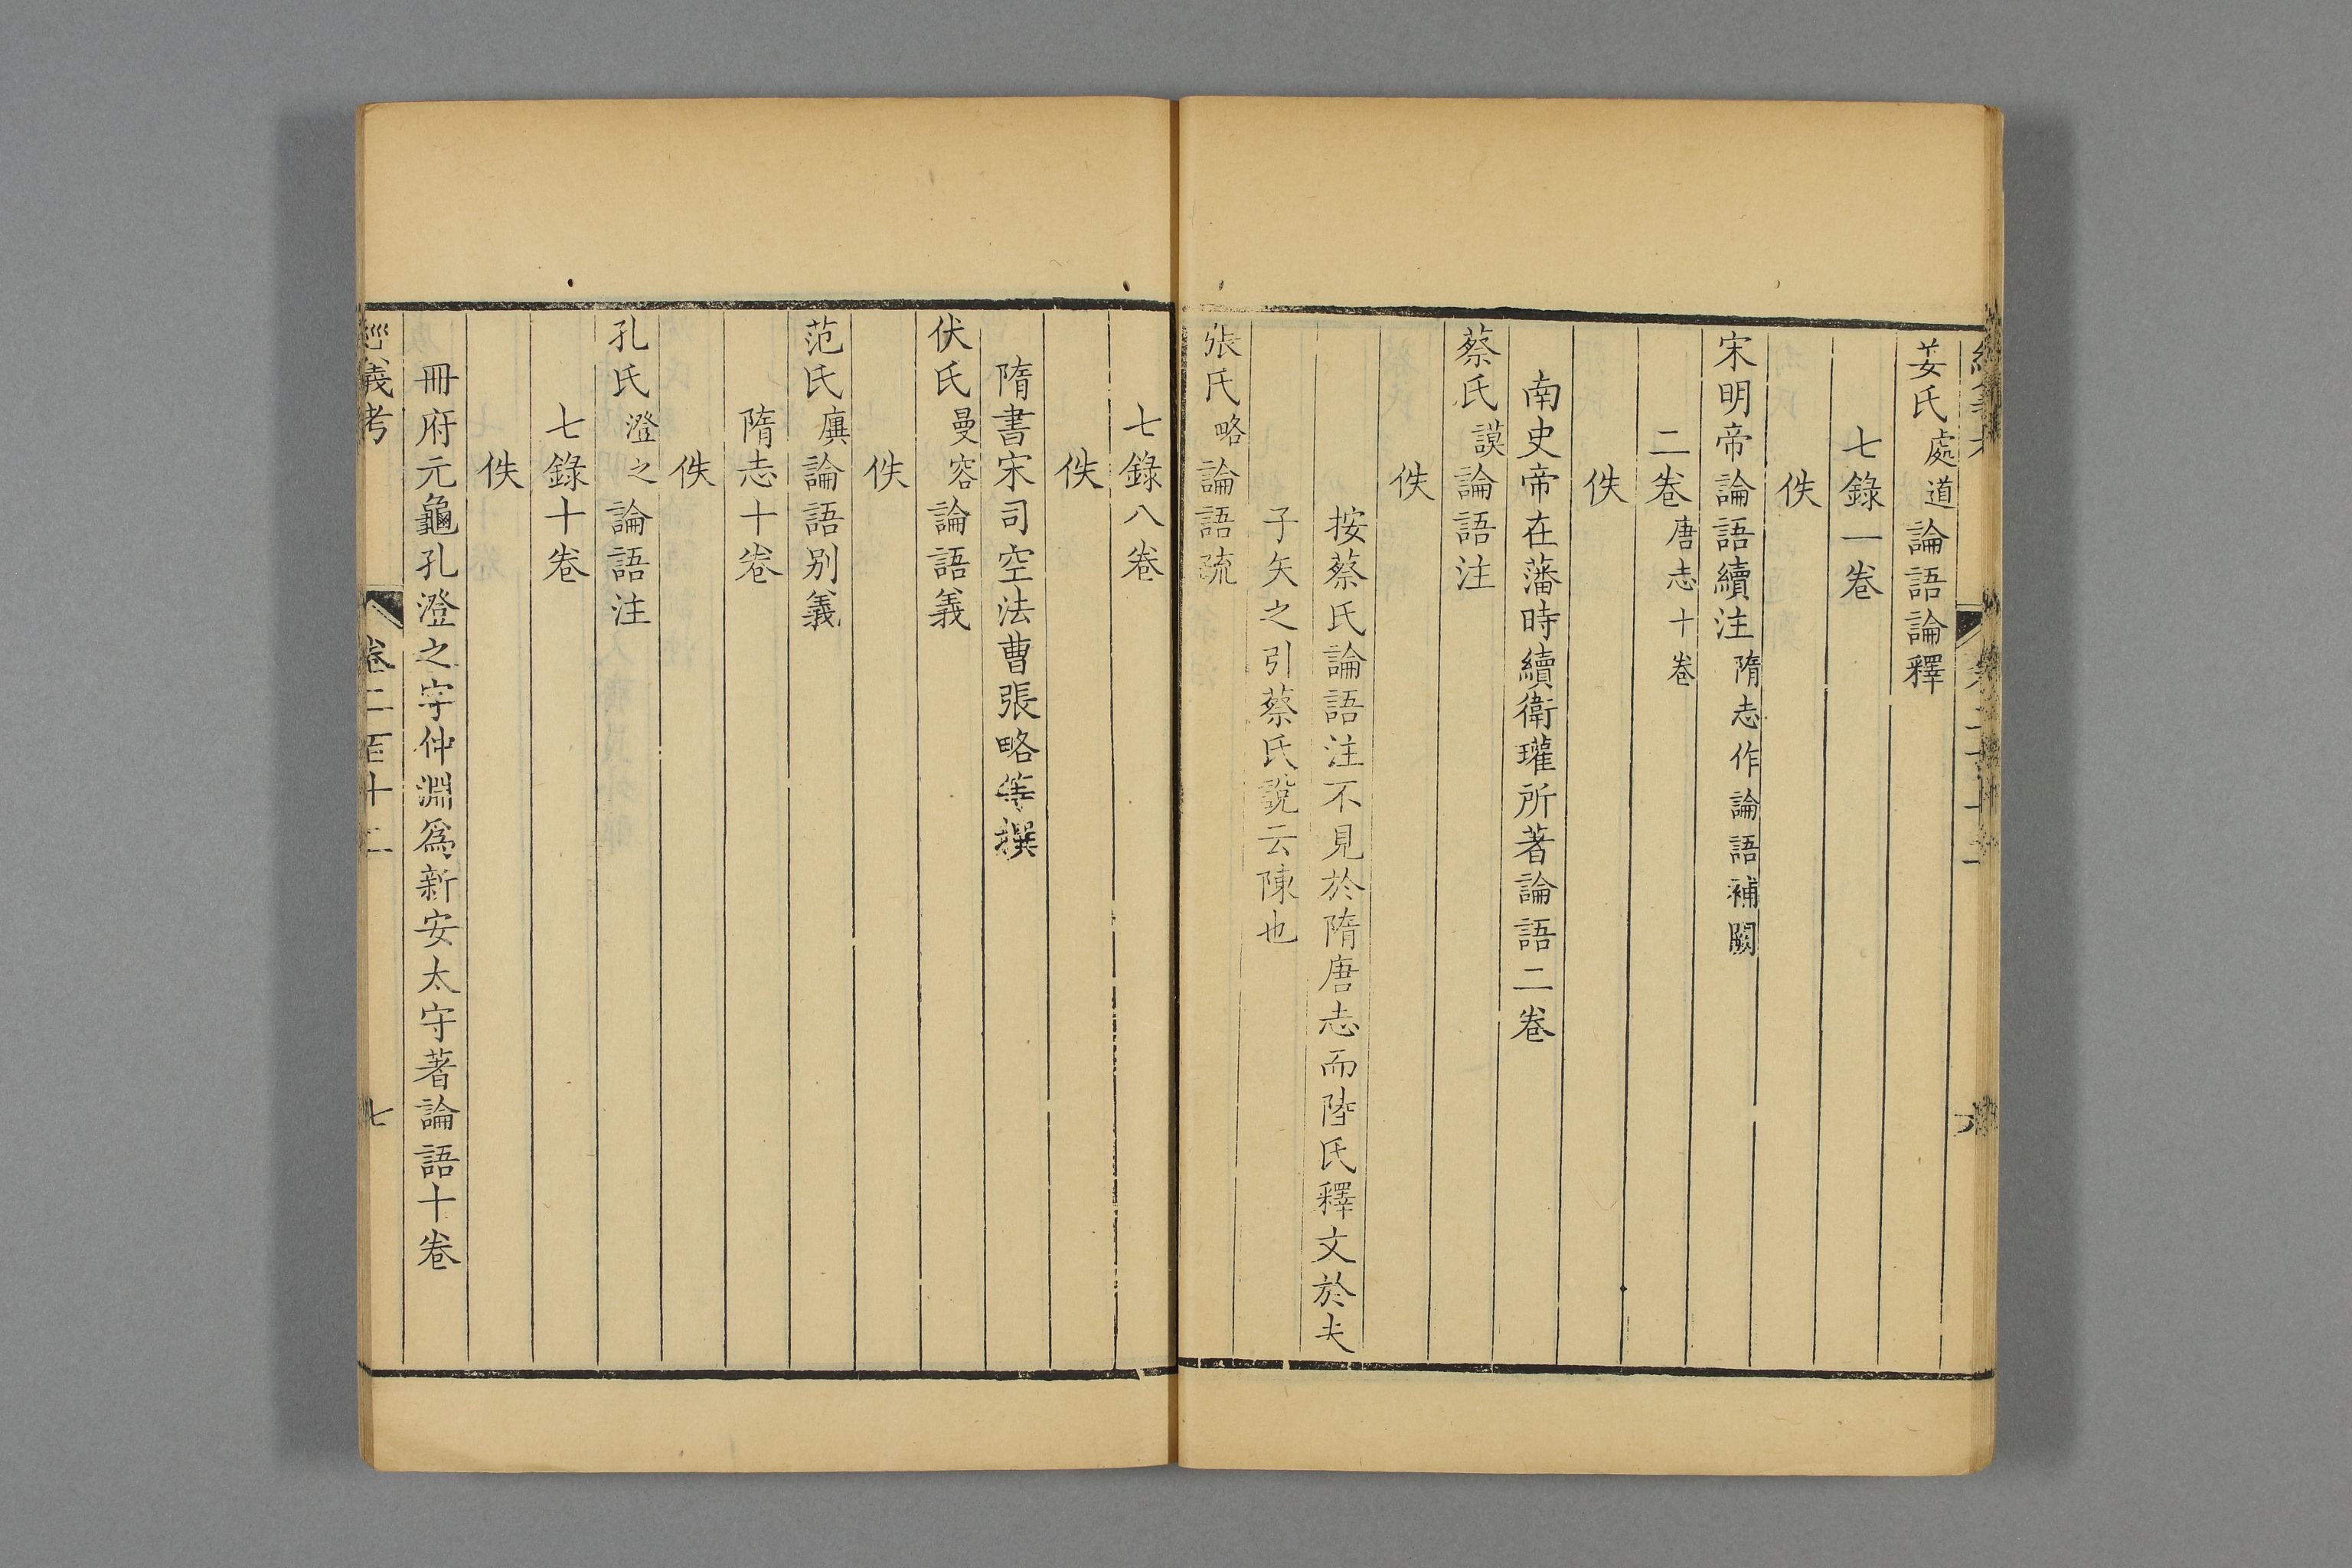 姜氏處道論語論釋
七錄一卷
佚
宋明帝論語續注隋志作論語補闕
二卷唐志十卷
佚
南史帝在藩時續衛瓘所著論語二卷
蔡氏謨論語注
佚
按蔡氏論語注不見於隋唐志而陸氏釋文於夫
子矢之引蔡氏說云陳也
張氏略論語疏
七錄八卷
佚
隋書宋司空法曹張略等撰
伏氏曼容論語義
佚
范氏廙論語别義
隋志十卷
佚
孔氏澄之論語注
七錄十卷
佚
冊府元龜孔澄之字仲淵爲新安太守著論語十卷
經義考
卷二百十二
七